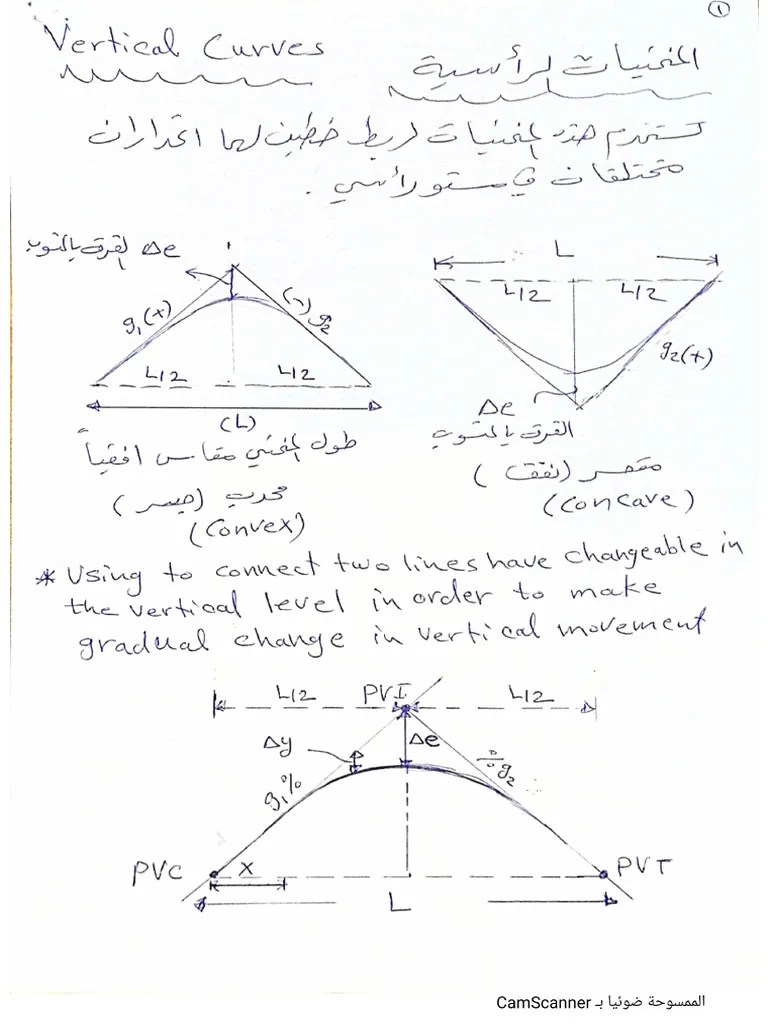 ١
Vertical Curves
المنحنيات الرأسية
تستخدم هذه المنحنيات لربط خطين لهما انحدارات
مختلفات في مستو رأسي .
Δe الفرق بالمنسوب
g₁(+)
(-)g₂
L/2 L/2
(L)
طول المنحني مقاس افقياً
محدب (جسر)
(Convex)
L
L/2 L/2
g₂(+)
Δe
الفرق بالمنسوب
مقعر (نفق)
(Concave)
* Using to connect two lines have changeable in
the vertical level in order to make
gradual change in vertical movement
L/2 PVI L/2
Δy Δe
g₁% %g₂
PVC x PVT
L
الممسوحة ضوئيا بـ CamScanner